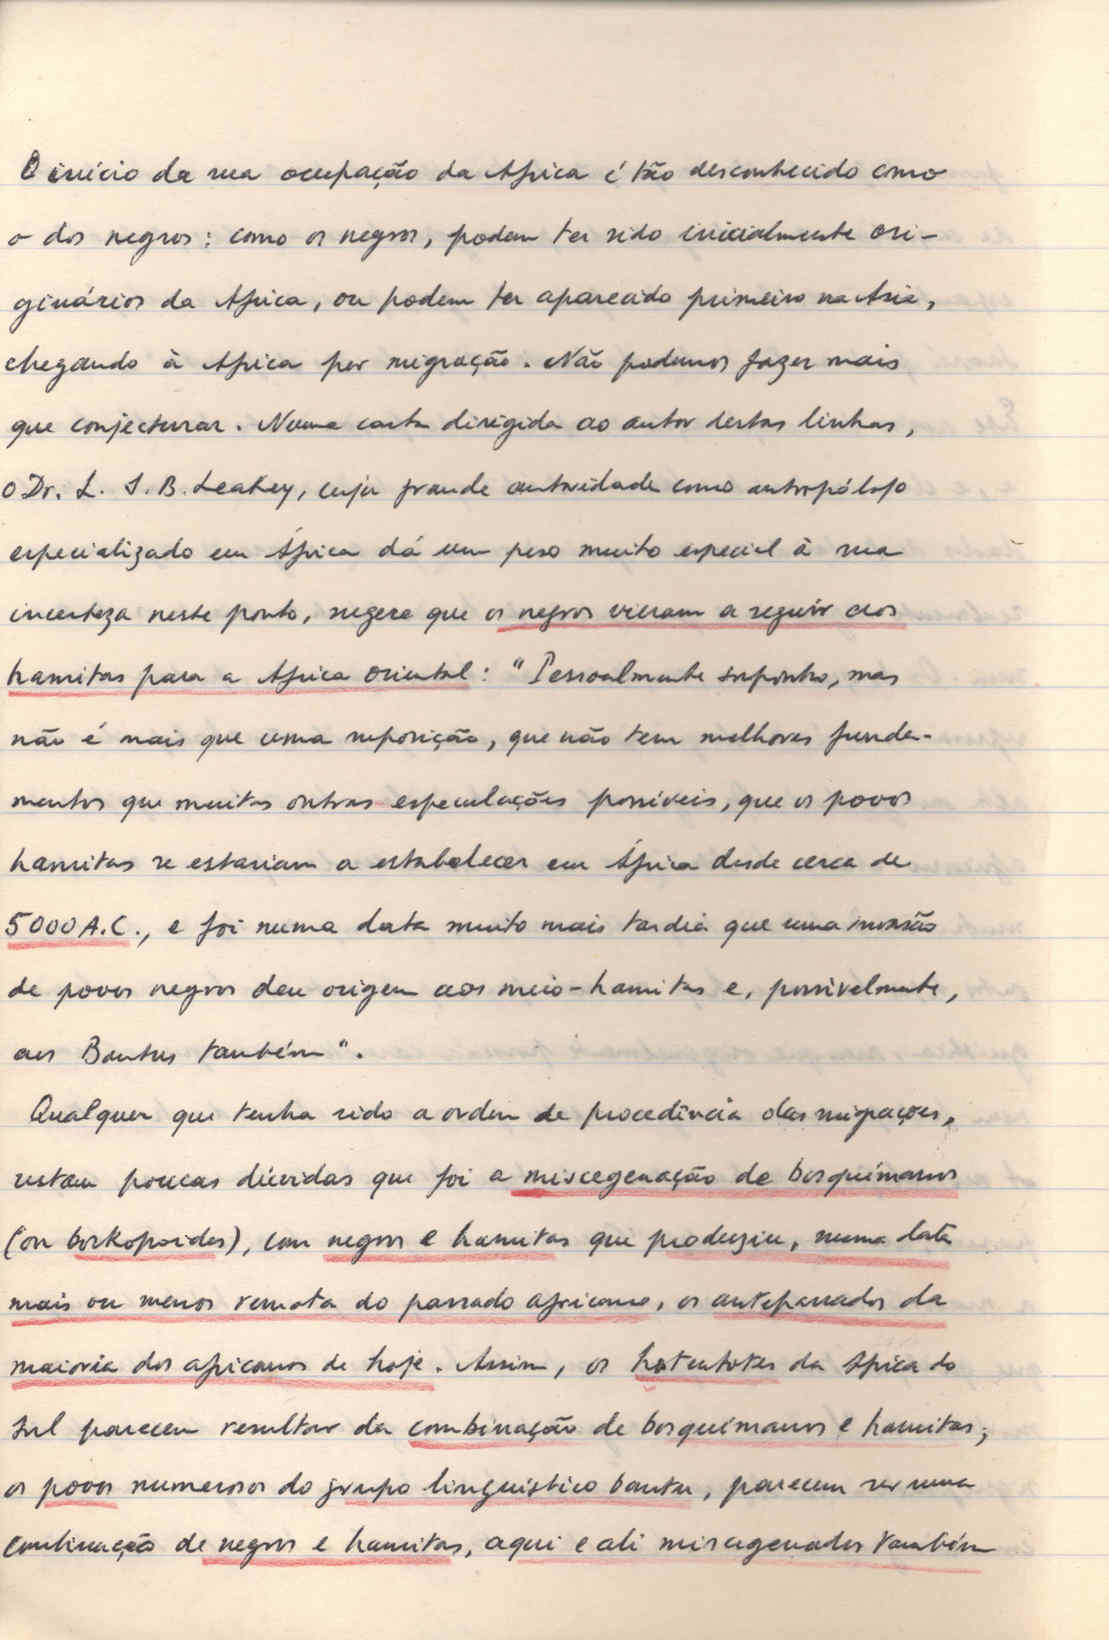 O início da sua ocupação da Africa é tão desconhecido como
o dos negros: como os negros, podem ter sido inicialmente ori-
ginários da Africa, ou podem ter aparecido primeiro na Asia,
chegando à Africa por migração. Não podemos fazer mais
que conjecturar. Numa carta dirigida ao autor destas linhas,
o Dr. L. S. B. Leakey, cuja grande autoridade como antropólogo
especializado em África dá um peso muito especial à sua
incerteza neste ponto, sugere que os negros vieram a seguir aos
hamitas para a Africa Oriental: "Pessoalmente suponho, mas
não é mais que uma suposição, que não tem melhores funda-
mentos que muitas outras especulações possíveis, que os povos
hamitas se estariam a estabelecer em África desde cerca de
5000 A.C., e foi numa data muito mais tardia que uma invasão
de povos negros deu origem aos meio-hamitas e, possivelmente,
aos Bantus também".
Qualquer que tenha sido a ordem de procedência das migrações,
restam poucas dúvidas que foi a miscegenação de bosquímanos
(ou boskopoides), com negros e hamitas que produziu, numa data
mais ou menos remota do passado africano, os antepassados da
maioria dos africanos de hoje. Assim, os hotentotes da Africa do
Sul parecem resultar da combinação de bosquímanos e hamitas;
os povos numerosos do grupo linguístico bantu, parecem ser uma
combinação de negros e hamitas, aqui e ali miscegenados também